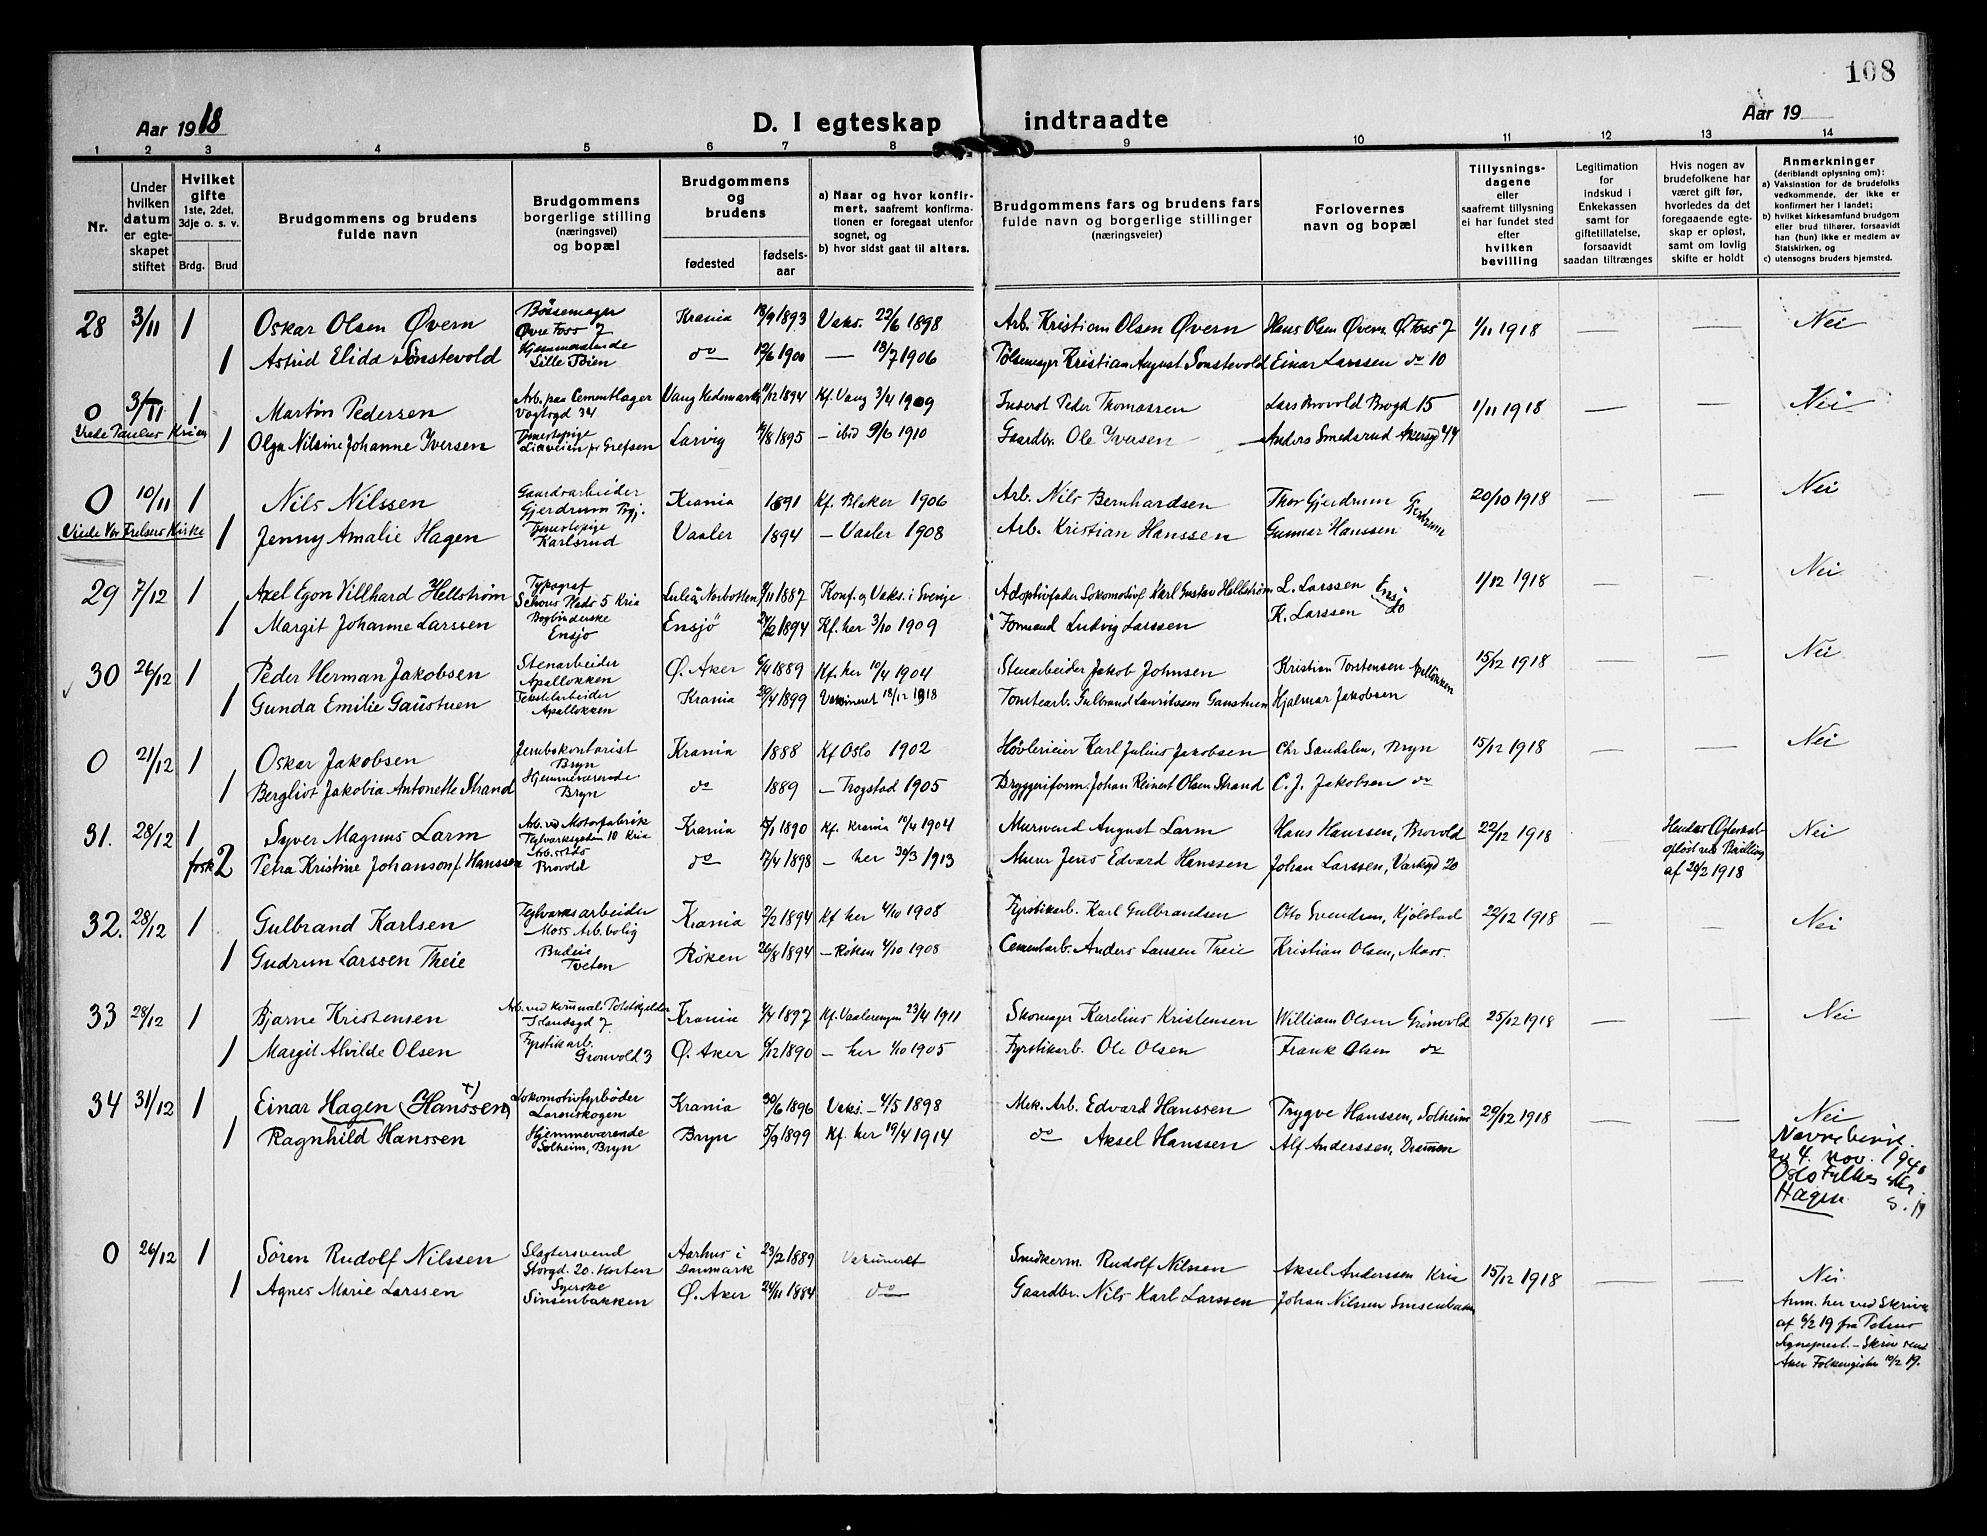 108
Aar 1918 D. I egteskap indtraadte Aar 19
1 2 3 4 5 6 7 8 9 10 11 12 13 14
Nr.
Under hvilken datum er egte-skapet stiftet
Hvilket gifte 1ste, 2det, 3dje o. s. v. Brdg. Brud
Brudgommens og brudens fulde navn
Brudgommens borgerlige stilling (næringsvei) og bopæl
Brudgommens og brudens fødested fødsels-aar
a) Naar og hvor konfir-mert, saafremt konfirma-tionen er foregaat utenfor sognet, og b) hvor sidst gaat til alters.
Brudgommens fars og brudens fars fulde navn og borgerlige stillinger (næringsveier)
Forlovernes navn og bopæl
Tillysnings-dagene eller saafremt tillysning ei har fundet sted efter hvilken bevilling
Legitimation for indskud i Enkekassen samt for giftetillatelse, forsaavidt saadan tiltrænges
Hvis nogen av brudefolkene har været gift før, hvorledes da det foregaaende egte-skap er opløst, samt om lovlig skifte er holdt
Anmerkninger (deriblandt oplysning om): a) Vaksination for de brudefolks vedkommende, der ikke er konfirmert her i landet; b) hvilket kirkesamfund brudgom eller brud tilhører, forsaavidt han (hun) ikke er medlem av Statskirken, og c) utensogns bruders hjemsted.
28 3/11 1 Oskar Olsen Øvern Bøssemager Øvre Foss 7 Krania 18/9 1893 Vaks. 22/6 1898 Arb. Kristian Olsen Øvern Hans Olsen Øvern Ø Foss 7 1/11 1918 — — Nei
1 Astrid Elida Sønstevold Hjemmeværende Lille Tøien do 12/6 1900 — 18/7 1906 Pølsemager Kristian August Sønstevold Einar Larssen do 10
0 3/11 1 Martin Pedersen Arb. paa Cementlager Vogtsgd 34 Vang Hedemarken 11/12 1894 Kf. Vang 3/4 1909 Inderst Peder Thomassen Lars Brovold Brogd 15 1/11 1918 — — Nei
Viede Paulus Kirke 1 Olga Nilsine Johanne Iversen Tjenestepige Liaveien pr Grefsen Larvig 19/8 1895 — ibid 9/6 1910 Gaardbr. Ole Iversen Anders Smedsrud Akersgd 44
0 10/11 1 Nils Nilssen Gaardsarbeider Gjerdrum Krania 1891 Kf. Blaker 1906 Arb. Nils Bernhardsen Thor Gjerdrum Gjerdrum 20/10 1918 — — Nei
Viede Vor Frelsers Kirke 1 Jenny Amalie Hagen Tjenestepige Karlsrud Vaaler 1894 — Vaaler 1908 Arb. Kristian Hanssen Gunnar Hanssen
29 7/12 1 Axel Egon Villhard Hellstrøm Typograf Schous Plads 5 Kria Luleå Norbotten 9/11 1887 Konf. og Vaks. i Sverige Adoptivfader Lokomotivf Karl Gustav Hellstrøm L. Larssen Ensjø 1/12 1918 — — Nei
1 Margit Johanne Larssen Bogbinderske Ensjø Ensjö 24/2 1894 Kf. her 3/10 1909 Formand Ludvig Larssen K. Larssen do
30 26/12 1 Peder Herman Jakobsen Stenarbeider Apalløkken Ø. Aker 6/4 1889 Kf. her 10/4 1904 Stenarbeider Jakob Johnsen Kristian Torstensen Apalløkken 15/12 1918 — — Nei
1 Gunda Emilie Gaustuen Tekstilarbeider Apalløkken Krania 29/4 1899 Vaksineret 18/12 1918 Tomtearb. Gulbrand Lauritssen Gaustuen Hjalmar Jakobsen
0 21/12 1 Oskar Jakobsen Jernbkontorist Bryn Krania 1888 Kf Oslo 1902 Høvlerieier Karl Julius Jakobsen Chr Sandalen, Bryn 15/12 1918 — — Nei
1 Bergliot Jakobia Antonette Strand Hjemmeværende Bryn do 1889 — Trøgstad 1905 Bryggeriform. Johan Reinert Olsen Strand C. J. Jakobsen do
31. 28/12 1 Syver Magnus Larm Arb. ved Motorfabrik Teglverksgaden 10 Kria Krania 15/1 1890 Kf. Krania 10/4 1904 Murmand August Larm Hans Hanssen, Brovold 22/12 1918 Hendes Egteskab opløst ved Bevilling af 20/2 1918 Nei
frsk 2 Petra Kristine Johanson f Hanssen Arb.ske Brovold do 17/4 1898 — her 30/3 1913 Murer Jens Edvard Hanssen Johan Larssen, Verksgd 20
32. 28/12 1 Gulbrand Karlsen Teglverksarbeider Moss Arb.bolig Krania 7/2 1894 Kf her 4/10 1908 Fyrstikarb. Karl Gulbrandsen Otto Svendsen, Kjølstad 22/12 1918 — — Nei
1 Gudrun Larssen Theie Budeie Tveten Røken 26/8 1894 — Røken 4/10 1908 Cementarb. Anders Larssen Theie Kristian Olsen, Moss.
33 28/12 1 Bjarne Kristensen Arb. ved komunale Potetkjelder Islandsgd 7 Krania 4/4 1897 Kf. Vaalerengen 23/4 1911 Skomager Karelius Kristensen William Olsen Grønvold 25/12 1918 — — Nei
1 Margit Alvilde Olsen Fyrstikarb. Grønvold 3 Ø. Aker 6/12 1890 — her 1/10 1905 Fyrstikarb. Ole Olsen Frank Olsen do
34 31/12 1 Einar Hagen (Hanssen) x) Lokomotivfyrbøder Lørenskogen Krania 30/6 1896 Vaks. — 4/5 1898 Mek. Arb. Edvard Hanssen Trygve Hanssen, Solheim 29/12 1918 — — Nei
1 Ragnhild Hanssen Hjemmeværende Solheim, Bryn Bryn 5/9 1899 Kf. her 19/4 1914 do Aksel Hanssen Alf Anderssen, Drammen
Navnebevil.
av 4. nov. 1940
Oslo Fylkes
Hagen
0 26/12 1 Søren Rudolf Nilssen Slagtersvend Storgd. 20. Horten Aarhus i Danmark 23/2 1889 Vaksineret Smedkerm. Rudolf Nilssen Aksel Anderssen Kria 15/12 1918 — — Nei
1 Agnes Marie Larssen Syerske Sinsenbakken Ø. Aker 24/11 1884 do Gaardbr. Nils Karl Larssen Johan Nilssen Sinsenbakken
Anm. her ved Skriv.
af 6/2 19 fra Petrus
Sogneprest. — Skriv send
Aker Folkeregister 10/2 19.